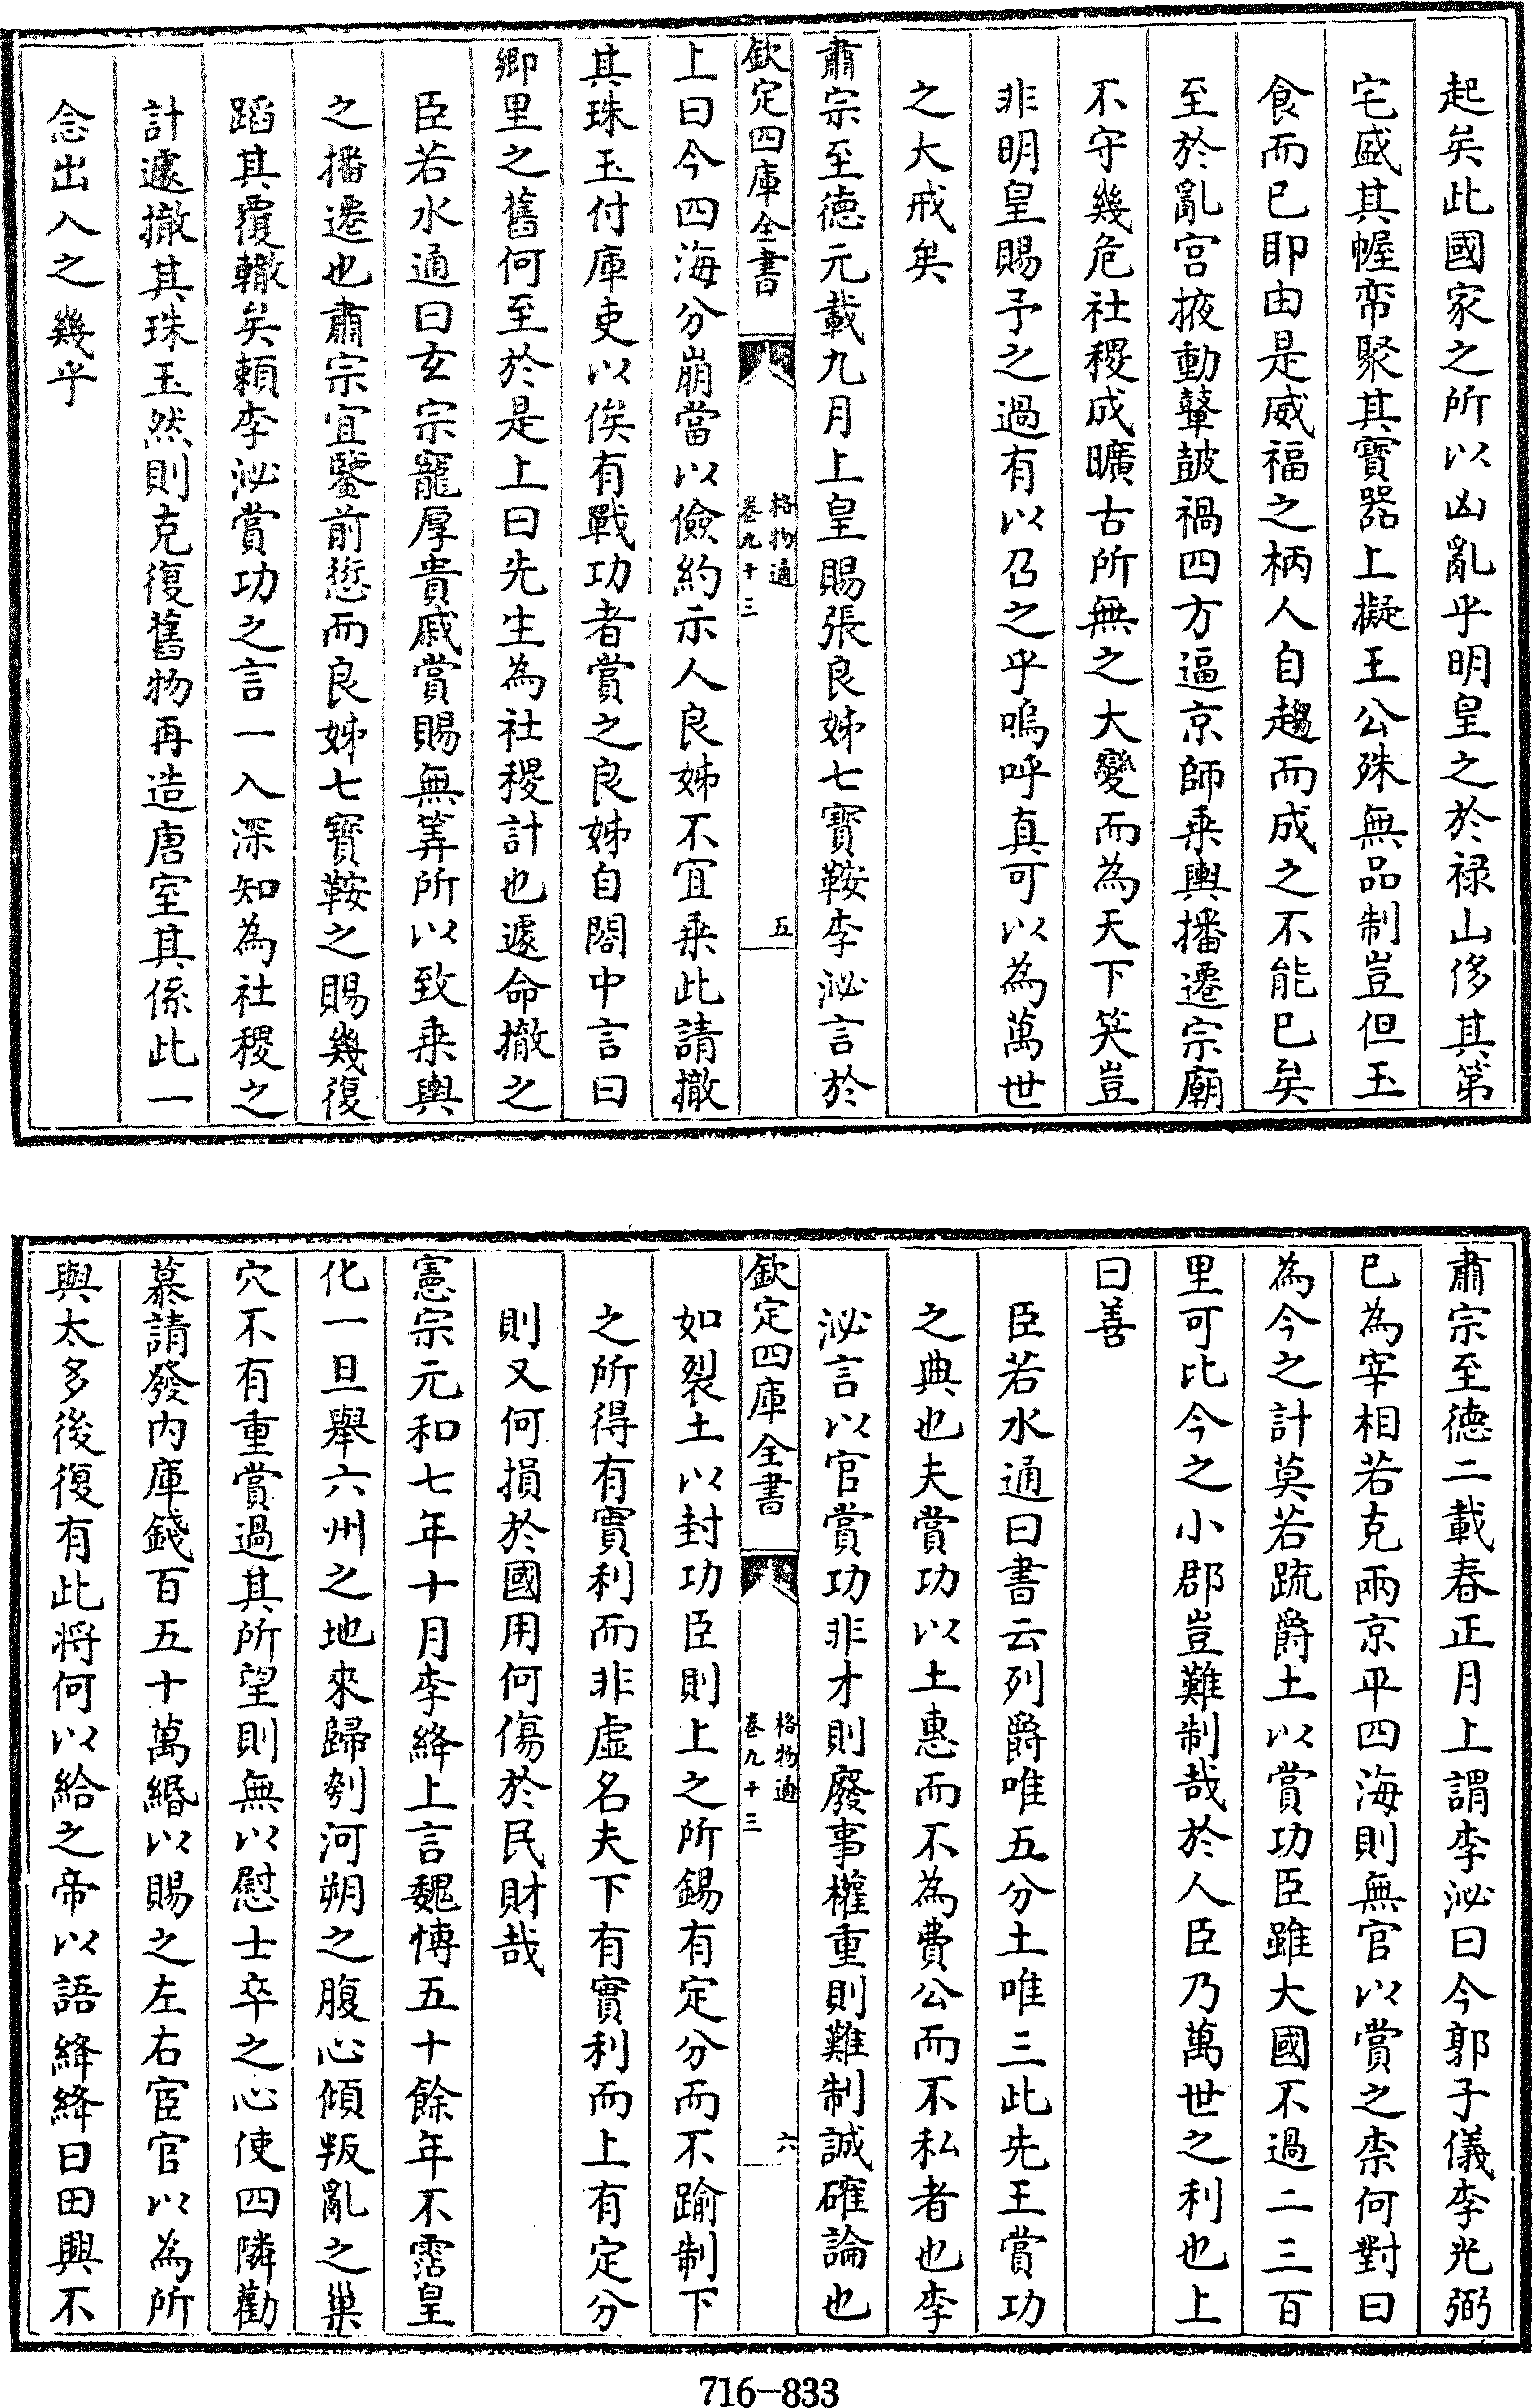 起矣此國家之所以凶亂乎明皇之於禄山侈其第
宅盛其幄帟聚其寶器上擬王公殊無品制豈但玉
食而已即由是威福之柄人自趨而成之不能已矣
至於亂宮掖動鼙鼓禍四方逼京師乗輿播遷宗廟
不守幾危社稷成曠古所無之大變而為天下笑豈
非明皇賜予之過有以召之乎嗚呼真可以為萬世
之大戒矣
肅宗至德元載九月上皇賜張良娣七寶鞍李泌言於
欽定四庫全書
格物通
卷九十三
五
上曰今四海分崩當以儉約示人良娣不宜乗此請撤
其珠玉付庫吏以俟有戰功者賞之良娣自閤中言曰
鄉里之舊何至於是上曰先生為社稷計也遽命撤之
臣若水通曰玄宗寵厚貴戚賞賜無筭所以致乗輿
之播遷也肅宗宜鑒前愆而良娣七寳鞍之賜幾復
蹈其覆轍矣賴李泌賞功之言一入深知為社稷之
計遽撤其珠玉然則克復舊物再造唐室其係此一
念出入之幾乎
肅宗至德二載春正月上謂李泌曰今郭子儀李光弼
已為宰相若克兩京平四海則無官以賞之柰何對曰
為今之計莫若疏爵土以賞功臣雖大國不過二三百
里可比今之小郡豈難制哉於人臣乃萬世之利也上
曰善
臣若水通曰書云列爵唯五分土唯三此先王賞功
之典也夫賞功以土惠而不為費公而不私者也李
泌言以官賞功非才則廢事權重則難制誠確論也
欽定四庫全書
格物通
卷九十三
六
如裂土以封功臣則上之所錫有定分而不踰制下
之所得有實利而非虛名夫下有實利而上有定分
則又何損於國用何傷於民財哉
憲宗元和七年十月李絳上言魏博五十餘年不霑皇
化一旦舉六州之地來歸刳河朔之腹心傾叛亂之巢
穴不有重賞過其所望則無以慰士卒之心使四隣勸
慕請發内庫錢百五十萬緡以賜之左右宦官以為所
與太多後復有此將何以給之帝以語絳絳曰田興不
716-833